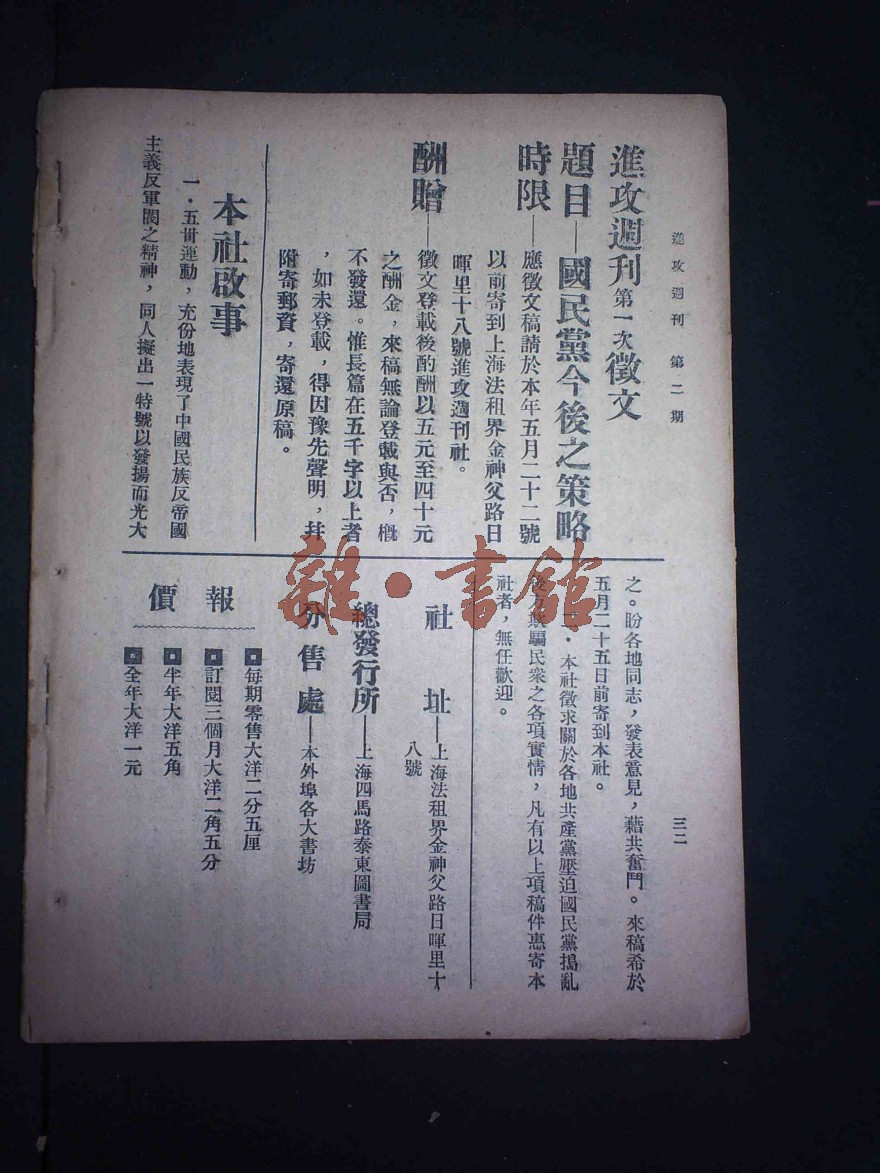 進攻週刊 第二期
三二
進攻週刊第一次徵文
題目—國民黨今後之策略
時限—應徵文稿請於本年五月二十二號
以前寄到上海法租界金神父路日
暉里十八號進攻週刊社。
酬贈—徵文登載後酌酬以五元至四十元
之酬金，來稿無論登載與否，概
不發還。惟長篇在五千字以上者
，如未登載，得因豫先聲明，幷
附寄郵資，寄還原稿。
本社啟事
一．五卅運動，充份地表現了中國民族反帝國
主義反軍閥之精神，同人擬出一特號以發揚而光大
之。盼各地同志，發表意見，藉共奮鬥。來稿希於
五月二十五日前寄到本社。
二．本社徵求關於各地共產黨壓迫國民黨搗亂
後方欺騙民衆之各項實情，凡有以上項稿件惠寄本
社者，無任歡迎。
社址—上海法租界金神父路日暉里十
八號
總發行所—上海四馬路泰東圖書局
分售處—本外埠各大書坊
報價
每期零售大洋二分五厘
訂閱三個月大洋二角五分
半年大洋五角
全年大洋一元
雜·書館